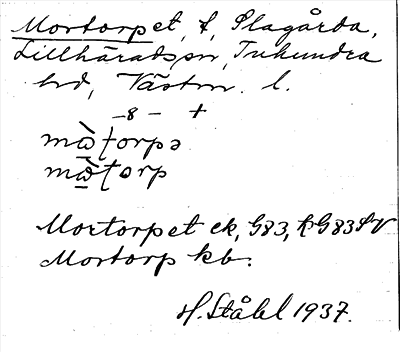 Mortorpet, t, Slagårda,
Lillhärads sn, Tuhundra
hd, Västm. l.
-8 - +
mà̱ʈorpə
mà̱ʈorp
Mortorpet ek, G83, k G83 SV
Mortorp kb.
H. Ståhl 1937.